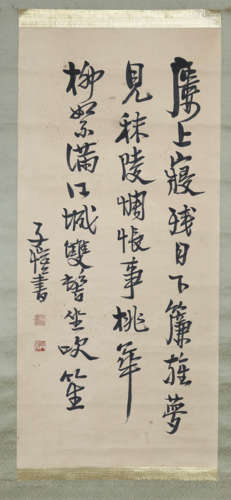 樓上寢残月下簾旌夢
見秣陵惆悵事桃華
柳絮滿江城雙髻坐吹笙
子愷書